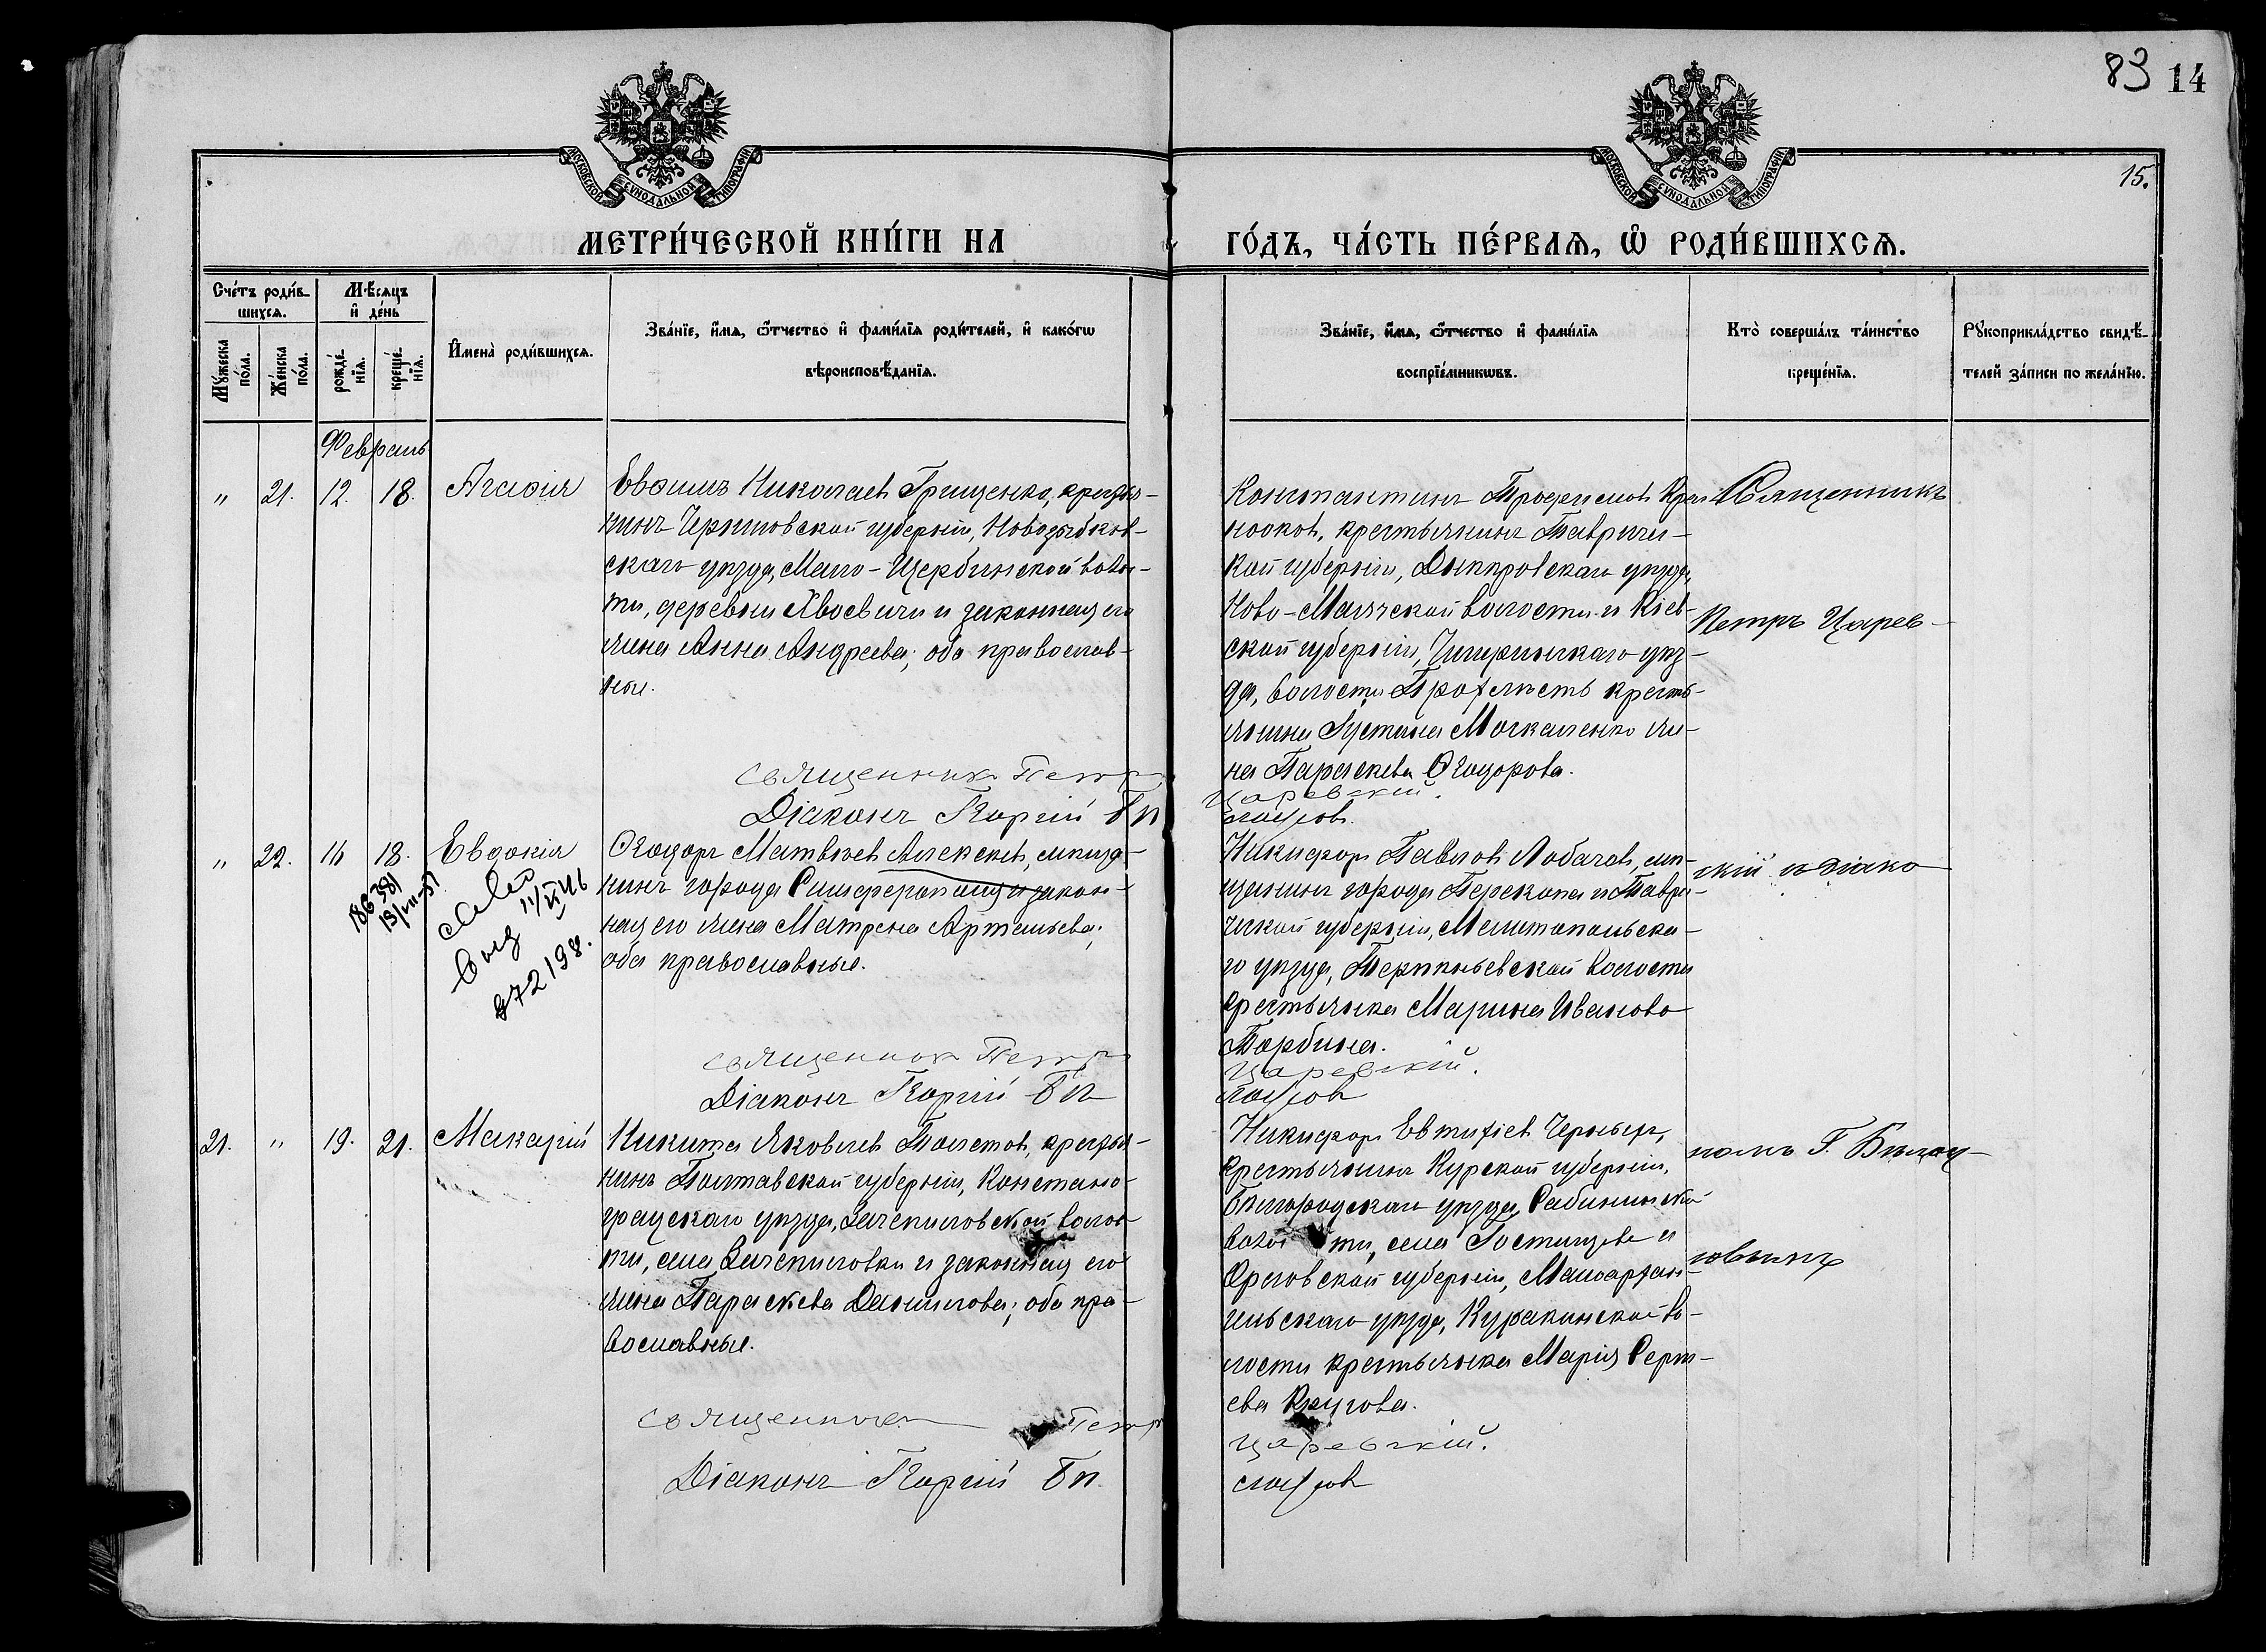 83 14
15.
МОСКОВСКОЙ СѴНОДАЛЬНОЙ ТИПОГРАФІИ
МОСКОВСКОЙ СѴНОДАЛЬНОЙ ТИПОГРАФІИ
МЕТРИ́ЧЕСКОЙ КНИ́ГИ НА
ГО́ДЪ, ЧА́СТЬ ПЕ́РВАѦ, Ѡ҆ РОДИ́ВШИХСѦ.
Сче́тъ роди́в-
шихсѧ.
Мѣ́сѧцъ
и҆ де́нь
Мꙋ́жеска
по́ла.
Же́нска
по́ла.
рожде́-
нїѧ.
креще́-
нїѧ.
И҆мена̀ роди́вшихсѧ.
Зва́нїе, и҆́мѧ, ѻ҆́тчество и҆ фами́лїѧ роди́телей, и҆ како́гѡ
вѣроисповѣ́данїѧ.
Зва́нїе, и҆́мѧ, ѻ҆́тчество и҆ фами́лїѧ
воспрїе́мникѡвъ.
Кто̀ соверша́лъ та́инство
креще́нїѧ.
Рꙋкоприкла́дство свидѣ́-
телей за́писи по жела́нїю.
Февраль
" 21. 12. 18. Агафія
Евфимъ Николаевъ Грищенко, крестья-
нинъ Черниговской губерніи, Новозыбков-
скаго уѣзда, Мало-Щербинской волос-
ти, деревни Хвоевичи и законная его
жена Анна Андреева; оба православ-
ные.
Священникъ Петръ
Діаконъ Георгій Бѣ
Константинъ Трофимовъ Крас
ноокъ, крестьянинъ Тавричес-
кой губерніи, Днѣпровскаго уѣзда,
Ново-Маячской волости и Кіев-
ской губерніи, Чигиринскаго уѣз-
да, волости крестья-
нина Густина Москаленко же-
на Параскева Ѳеодорова.
Царевскій.
лоусовъ.
Священникъ
Петръ Царев-
" 22. 16 18. Евдокія
186381
872198.
Ѳеодоръ Матвѣевъ Алексѣевъ, мѣща-
нинъ города Симферополя и закон-
ная его жена Матрена Артемьева;
оба православные.
Священник Петръ
Діаконъ Георгій Бѣ
Никифоръ Павловъ Лобачовъ, мѣ-
щанинъ города Перекопа и Таври-
ческой губерніи, Мелитопольска-
го уѣзда, Терпѣньевской волости
крестьянка Марина Иванова
Торбина.
Царевскій.
лоусовъ
скій и діако
21. " 19. 21. Макарій
Никита Яковлевъ Толстовъ, крестья-
нинъ Полтавской губерніи, Константино-
градскаго уѣзда, Зачепиловской волос-
ти, села Зачепиловки и законная его
жена Параскева Данилова; оба пра-
вославные.
Священникъ Петръ
Діаконъ Георгій Бѣ
Никифоръ Евтихіевъ Черныхъ,
крестьянинъ Курской губерніи,
Бѣлгородскаго уѣзда, Сабининской
волости, села Гостищева и
Орловской губерніи, Малоархан-
гельскаго уѣзда, Куракинской во-
лости крестьянка Марія Серге-
ева
Царевскій.
лоусовъ
номъ Г. Бѣлоу-
совымъ